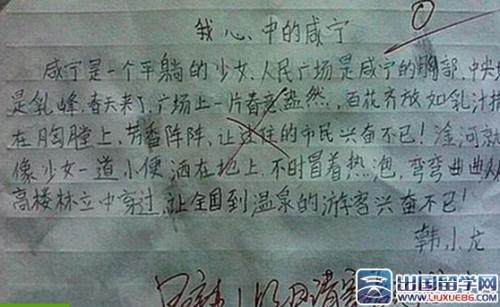 我心中的咸宁
咸宁是一个平躺的少女、人民广场是咸宁的胸部、中央
是乳峰、春天来了、广场上一片春意盎然、百花齐放如乳汁
在胸膛上、芳香阵阵、让过往的市民兴奋不已！淦河就
像少女一道小便洒在地上、不时冒着热泡、弯弯曲曲从
高楼林立中穿过、让全国到温泉的游客兴奋不已！
韩小龙
出国留学网
www.liuxue86.com